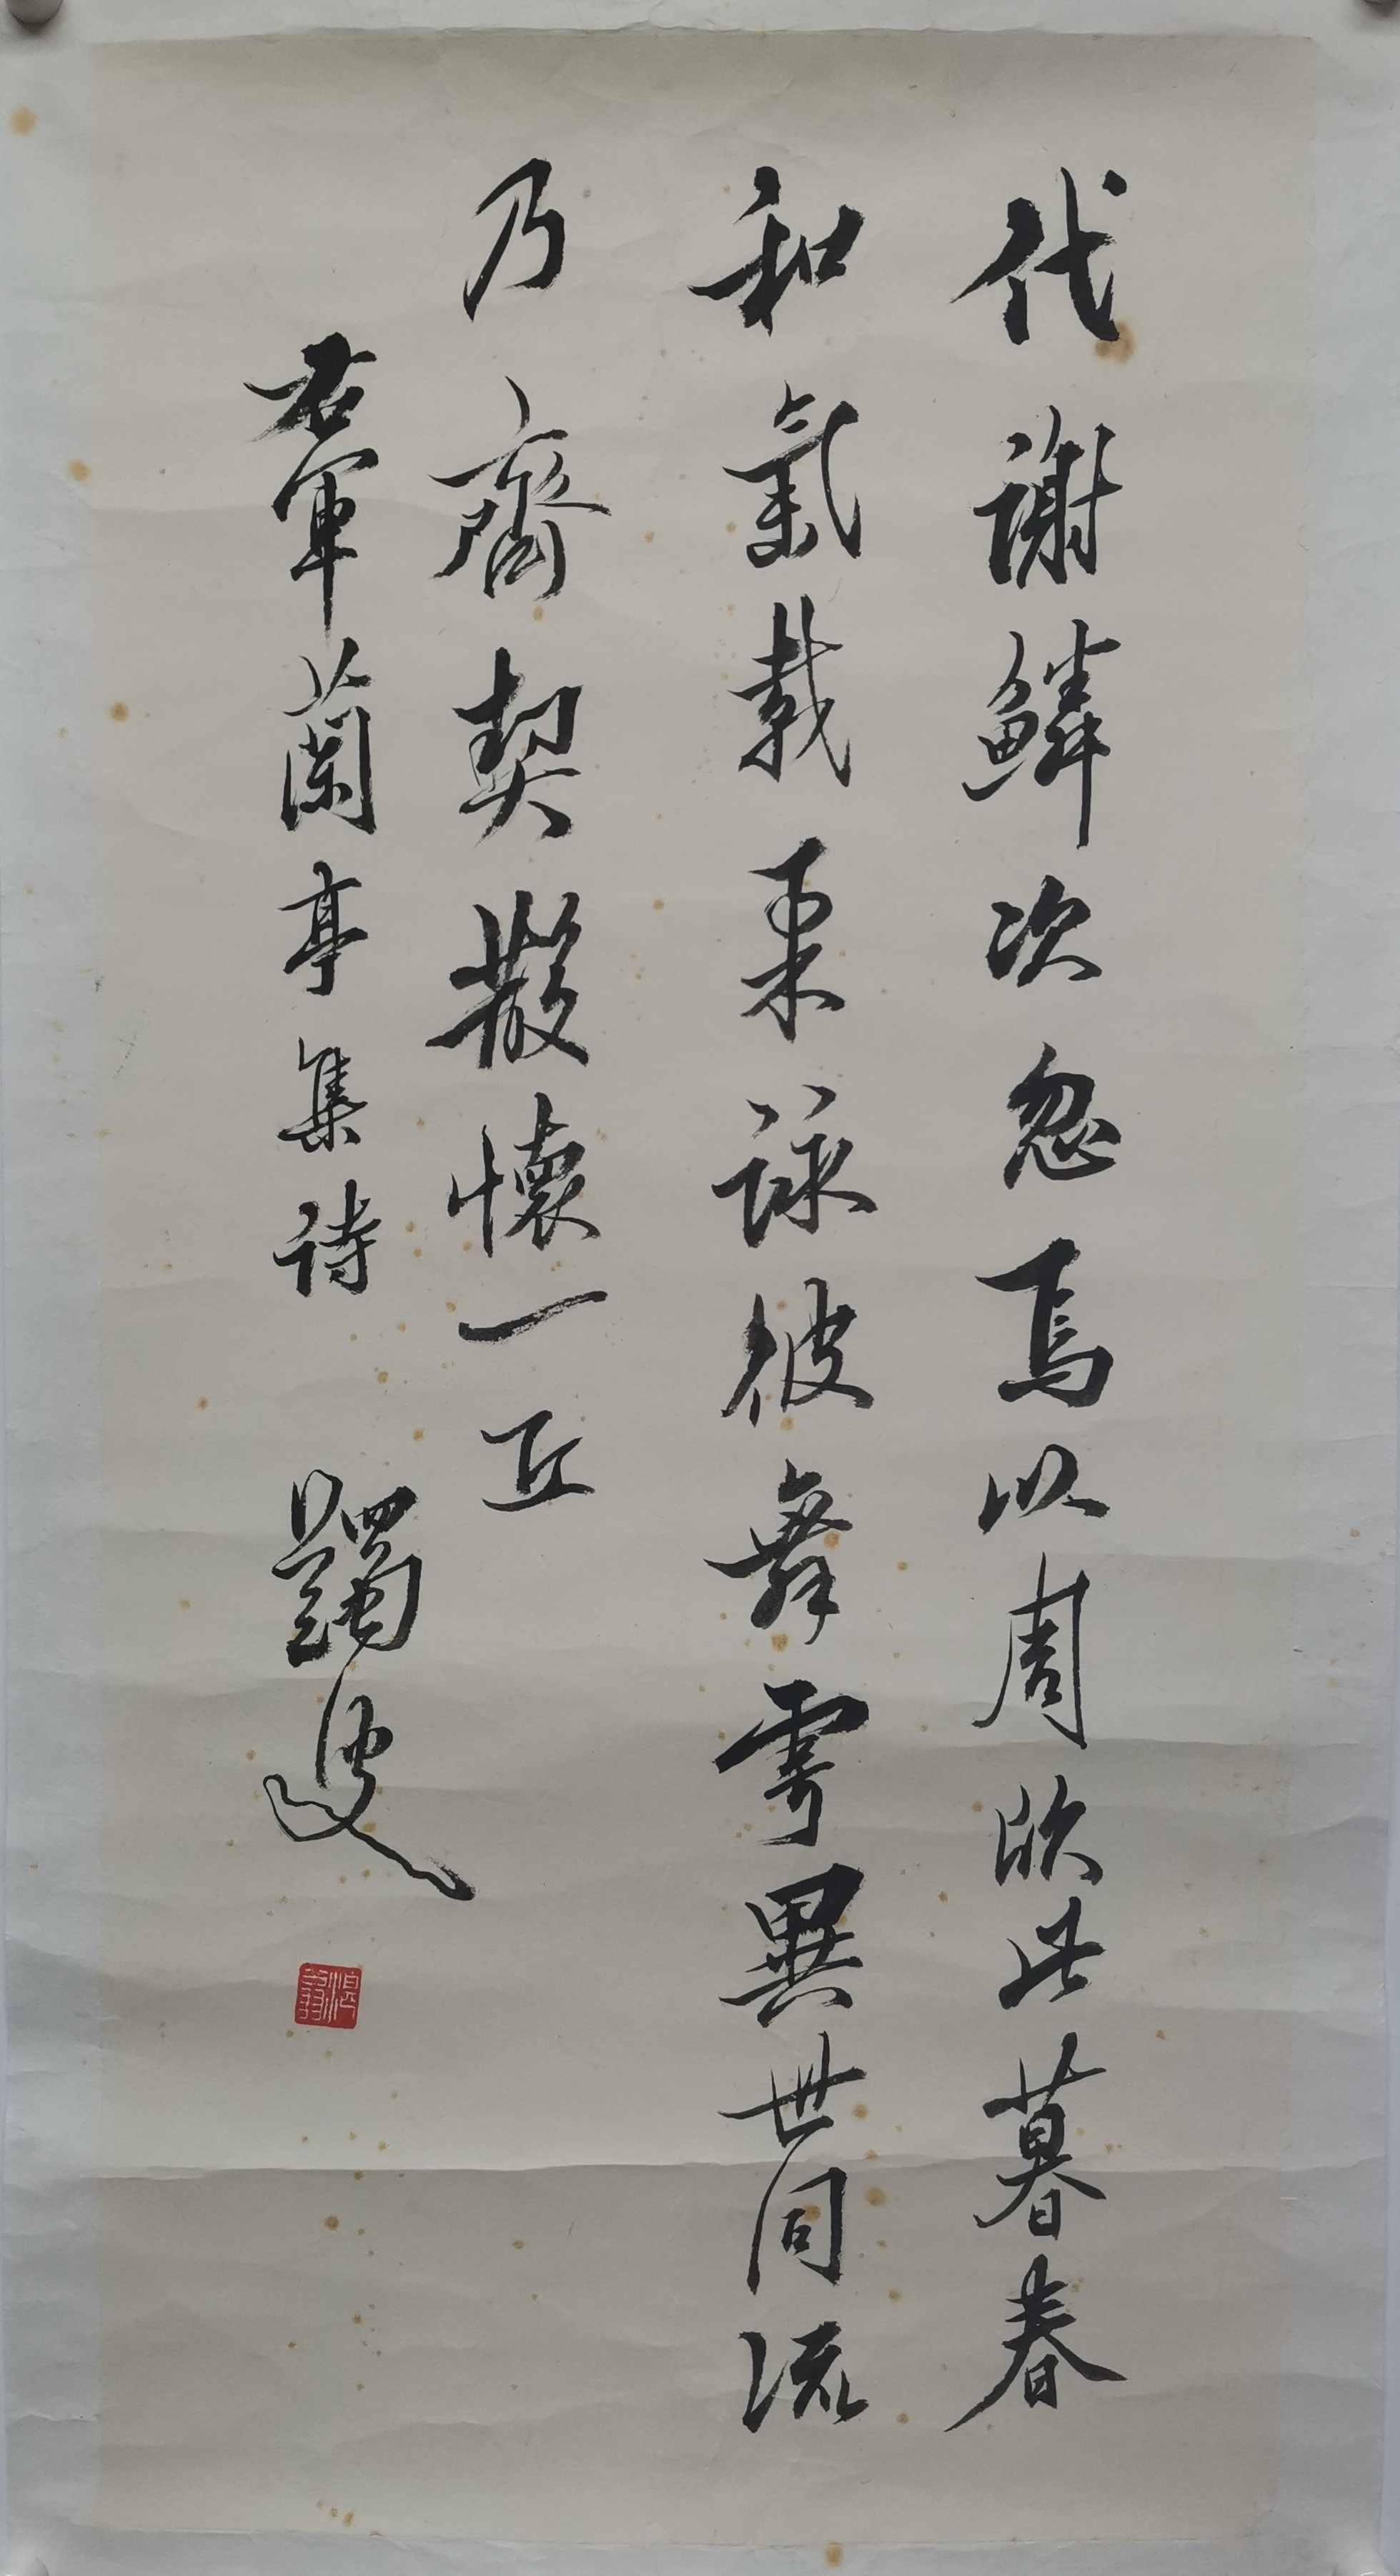 代謝鱗次忽焉以周欣此暮春
和氣載柔詠彼舞雩異世同流
乃齊契散懷一丘
右軍蘭亭集詩 蠲叟
湛翁